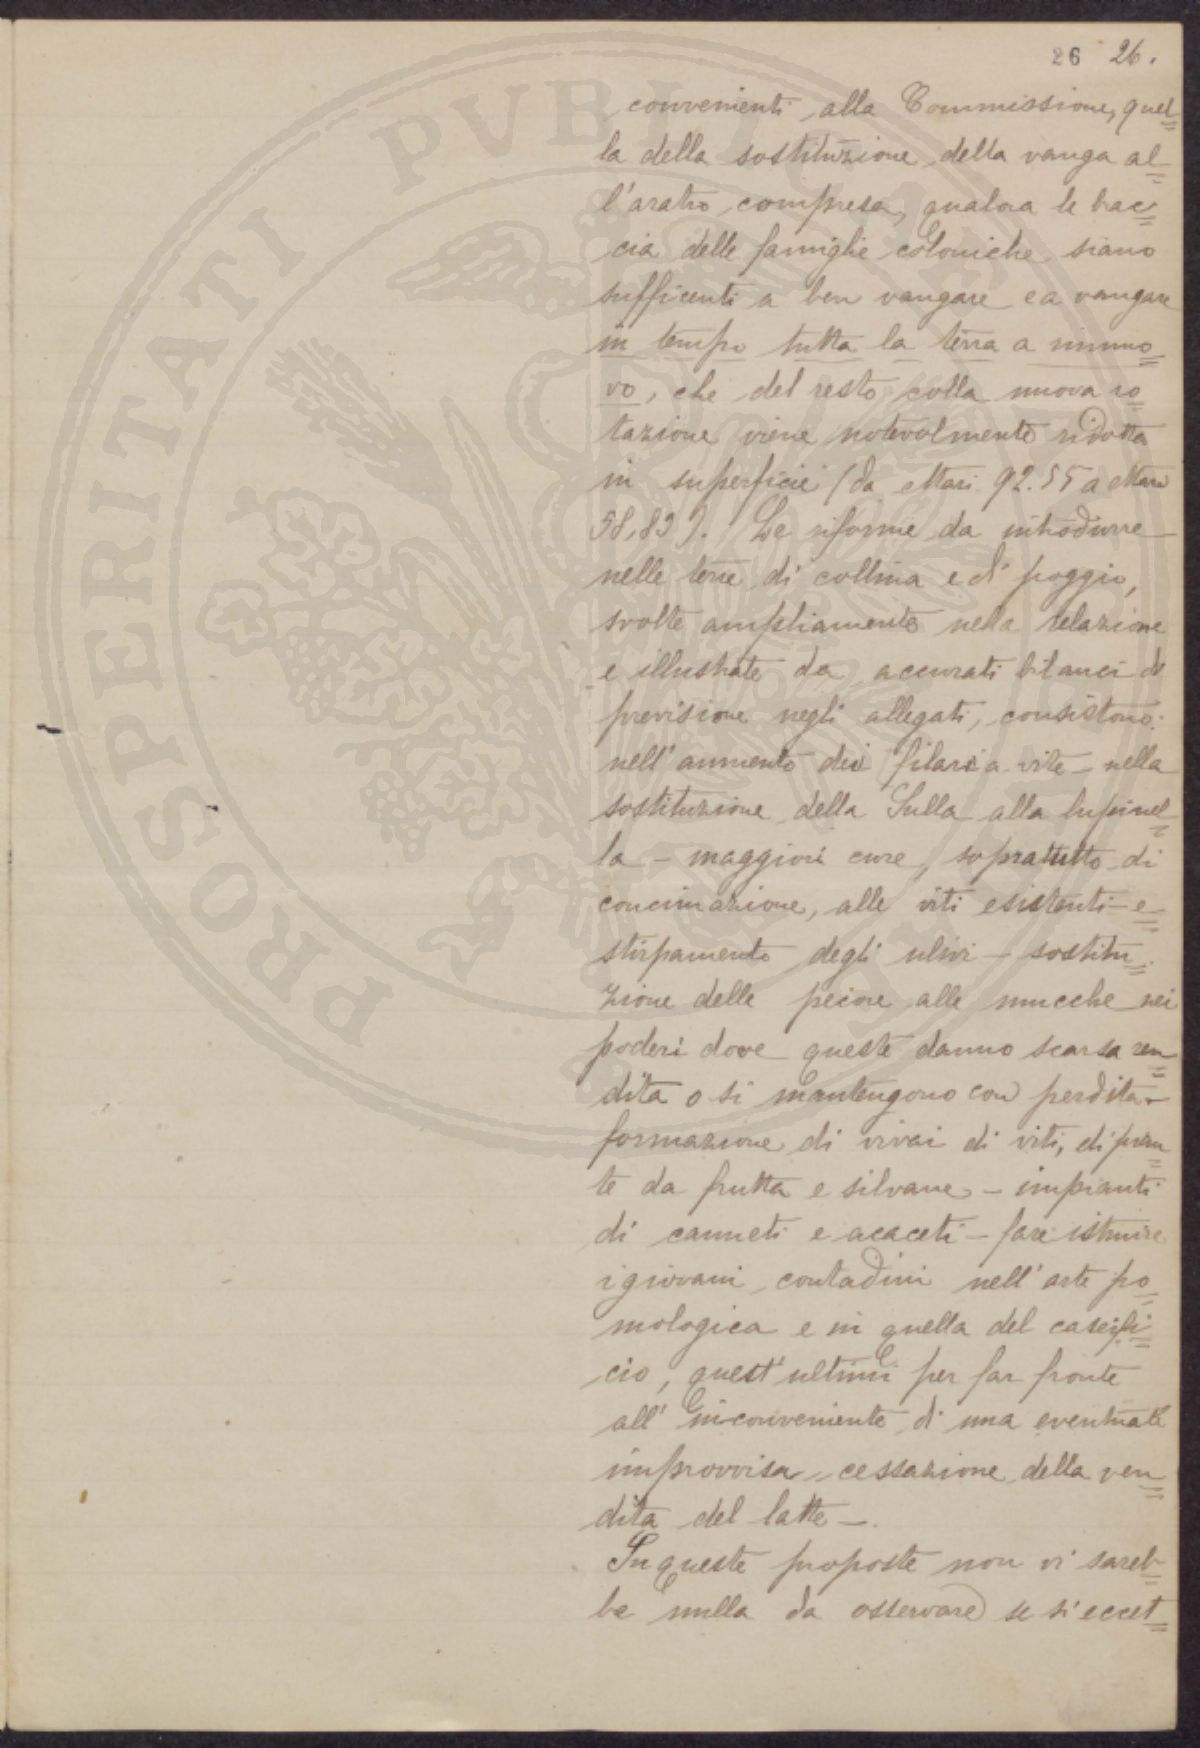 26 26.
convenienti alla Commissione, quel=
la della sostituzione della vanga al=
l'aratro compresa, qualora le brac=
cia delle famiglie coloniche siano
sufficenti a ben vangare e a vangare
in tempo tutta la terra a rinnuo=
vo, che del resto colla nuova ro=
tazione viene notevolmente ridotta
in superficie (da ettari 92.55 a ettari
58,83). Le riforme da introdurre
nelle terre di collina e di poggio,
svolte ampliamente nella relazione
e illustrate da accurati bilanci di
previsione negli allegati, consistono:
nell'aumento dei filari a vite - nella
sostituzione della Sulla alla lupinel=
la - maggiori cure, sopratutto di
concimazione, alle viti esistenti - e=
stirpamento degli ulivi - sostitu=
zione delle pecore alle mucche nei
poderi dove queste danno scarsa ren=
dita o si mantengono con perdita -
formazione di vivai di viti, di pian=
te da frutta e silvane - impianti
di canneti e acaceti - fare istruire
i giovani contadini nell'arte po=
mologica e in quella del caseifi=
cio, quest'ultimi per far fronte
all'inconveniente di una eventuale
improvvisa cessazione della ven=
dita del latte -.
In queste proposte non vi sareb=
be nulla da osservare se si eccet=
PROSPERITATI PVBLICAE